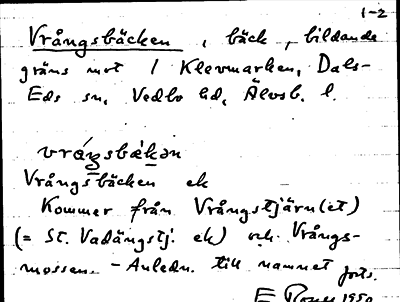 1-2
Vrångsbäcken, bäck, bildande
gräns mot / Klevmarken, Dals-
Eds sn, Vedbo hd, Älvsb. l.
vrǻŋsbɛ̀kən
Vrångsbäcken ek
Kommer från Vrångstjärn(et)
(= St. Vadängstj. ek) och Vrångs-
mossen. - Anledn. till namnet forts.
E 1950